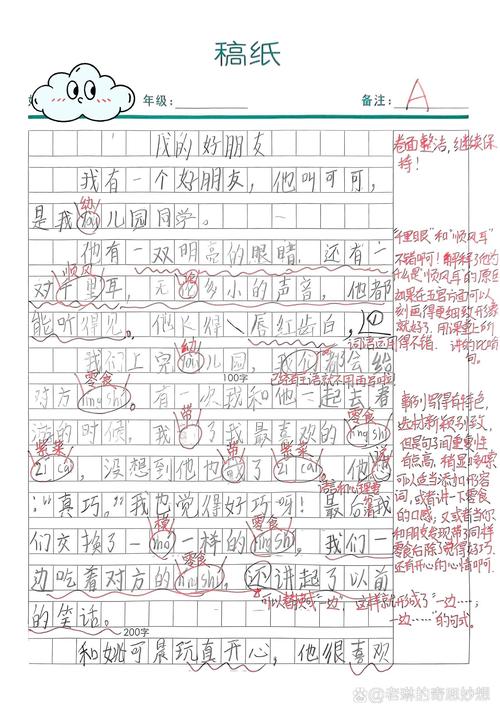 稿纸
年级：
备注： A
我的好朋友
我有一个好朋友，他叫可可，
是我you儿园同学。
幼
他有一双明亮的眼睛，还有一
对千里耳，无论多小的声音，他都
顺风
能听得见。他长得唇红齿白，
我们上完 儿园，我们都会给
幼
100字
已经有主语就不用再写啦！
对方 lingshi 。有一次我和他一起去春
零食
游的时候，我 了我最喜欢的
带
zi cai ，没想到他也 了 zi cai 。他 
紫菜
带
紫菜
说
："真巧。"我也觉得好巧呀！最后我
们交换了一mo一样的lingshi，我们一
模
零食
边吃着对方的lingshi，还讲起了以前
零食
可以替换成"一边"，这样就形成了"一边……；
一边……"的句式。
的笑话。
200字
和姚可晨玩真开心，他很喜欢
卷面整洁，继续保
持！
"千里眼"和"顺风耳"
不错啊！解释了他为
什么是"顺风耳"的原因
如果在五官方面可以
刻画得更细致形象
就好了。用课堂上的
词语运用得不错。
事例写得有特色，
可以适当添加形容
词，或者讲一下零食
的口感，又或者当你
和朋友发现带了同样
零食后除了觉得好巧，
还有开心的心情呵。
老琳的奇思妙想